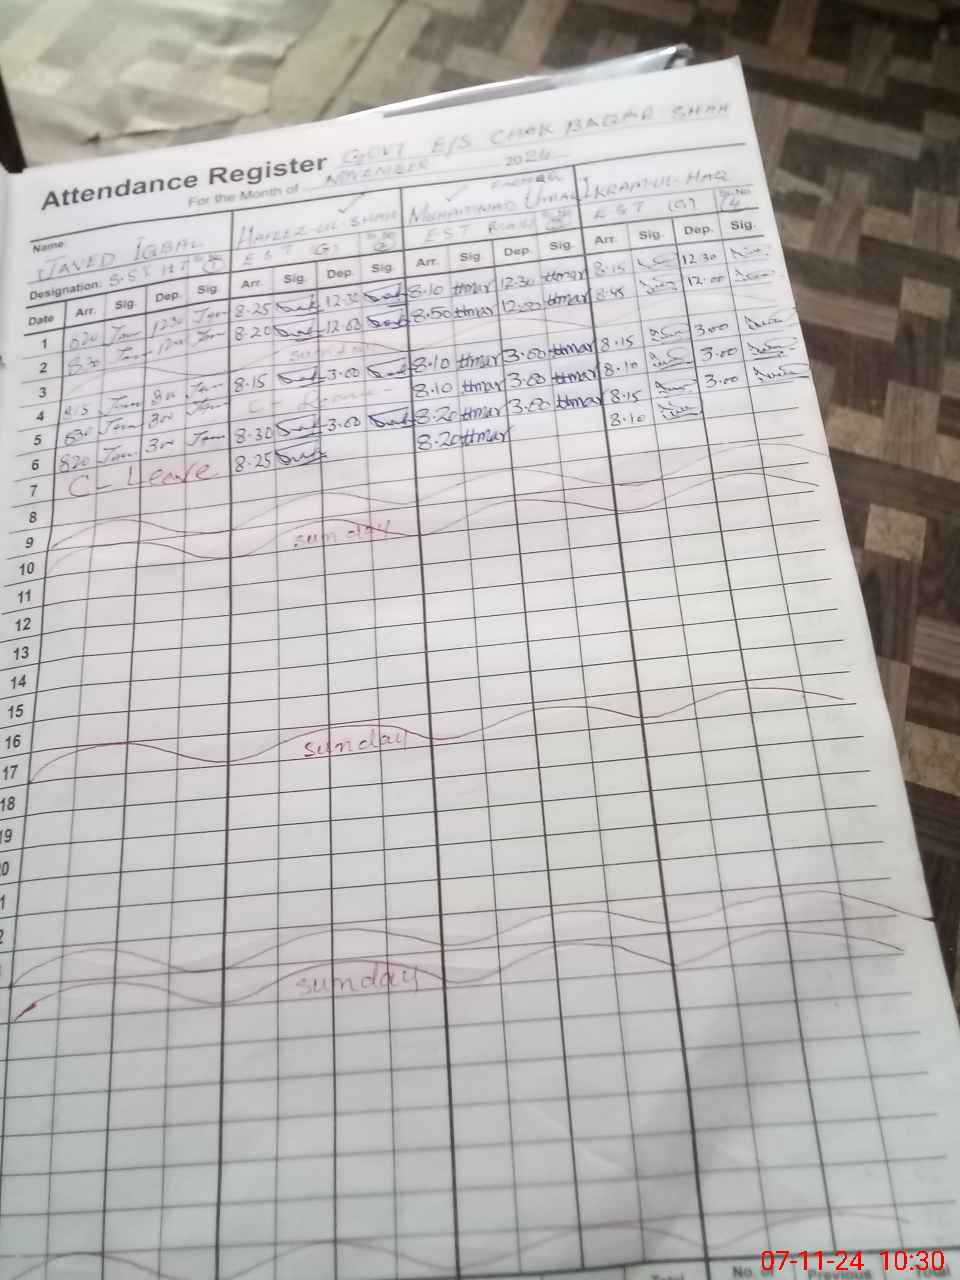 Attendance Register GOVT E/S CHAK BAQAR SHAH
For the Month of NOVEMBER 2024
Name: JAVED IQBAL HAFEEZ-UL-SHAH MUHAMMAD UMAR IKRAM-UL-HAQ
Designation: S.S.T EST (G) EST EST (G)
Date Arr. Sig. Dep. Sig. Arr. Sig. Dep. Sig. Arr. Sig. Dep. Sig. Arr. Sig. Dep. Sig.
1 820 1230 8.25 12.30 8.10 Umar 12.30 Umar 8.15 12.30
2 830 1200 8.20 12.00 8.50 Umar 12.00 Umar 8.45 12.00
3 sunday
4 815 300 8.15 3.00 8.10 Umar 3.00 Umar 8.15 3.00
5 830 300 C - Leave 8.10 Umar 3.00 Umar 8.10 3.00
6 820 300 8.30 3.00 8.20 Umar 3.00 Umar 8.15 3.00
7 C - Leave 8.25 8.20 Umar 8.10
8
9
10 sunday
11
12
13
14
15
16
17 sunday
18
19
20
sunday
No. of Previous Total
Total
07-11-24 10:30